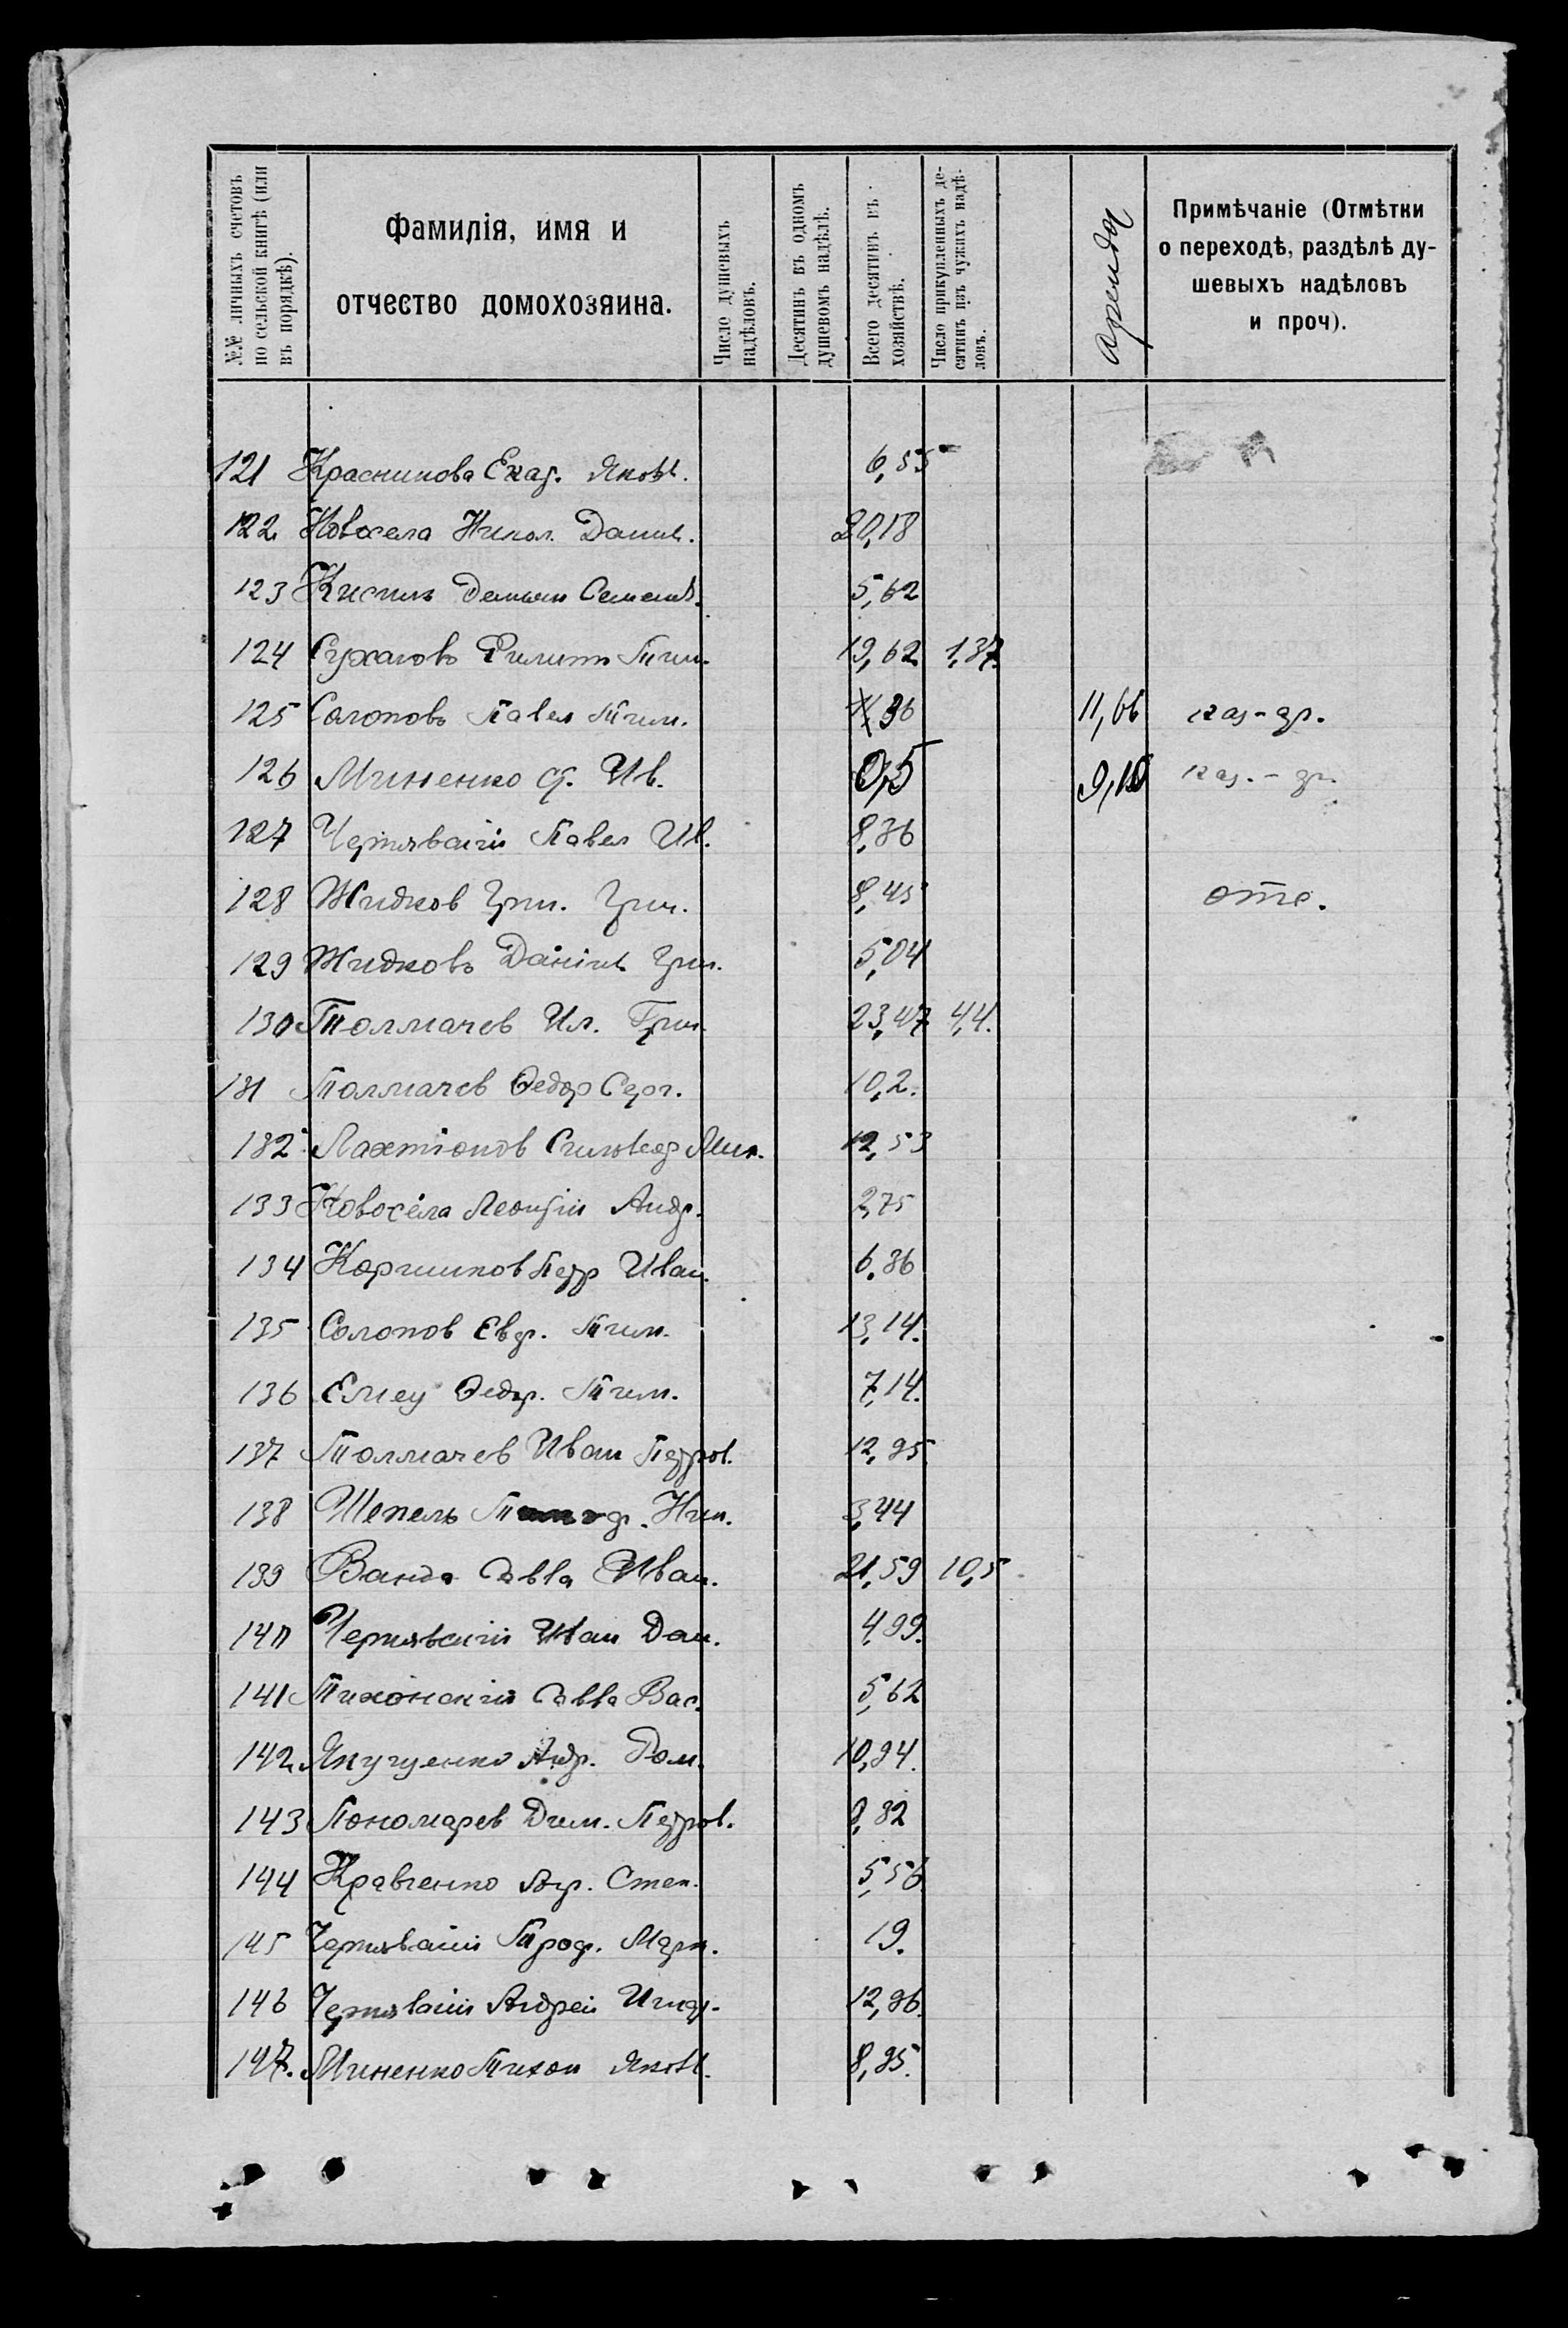 №№ личныхъ счетовъ по сельской книгѣ (или въ порядкѣ).
Фамилія, имя и отчество домохозяина.
Число душевыхъ надѣловъ.
Десятинъ въ одномъ душевомъ надѣлѣ.
Всего десятинъ въ хозяйствѣ.
Число прикупленныхъ десятинъ изъ чужихъ надѣловъ.
Аренда
Примѣчаніе (Отмѣтки о переходѣ, раздѣлѣ душевыхъ надѣловъ и проч).
121 Красникова Екат. Яковл. 6,55
122 Новосела Никол. Данил. 20,18
123 Кисиль Демьян Семенов. 5,62
124 Сухановъ Филиппъ Тим. 19,62 1,37.
125 Солоповъ Павел Тим. 36 11,66 каз-др.
126 Миненко Ив. 0,5 каз.-др.
127 Чернявскій Павел Ив. 8,36
128 Жидков Григ. Григ. 8,45 отс.
129 Жидковъ Даніил Григ. 5,04
130 Толмачев Ил. Григ. 23,47 4,4.
131 Толмачев Ѳедор Серг. 10,2.
132 Лахтіонов Мих. 12,53
133 Новосела Леонтій Андр. 2,75
134 Коршиков Петр Иван. 6,36
135 Солопов Евд. Тим. 13,14.
136 Елису Ѳедор. Тим. 7,14.
137 Толмачев Иван Петров. 12,95
138 Шепель Ник. 3,44
139 Ванда Савва Иван. 21,59 10,5
140 Чернявскій Иван Дан. 4,99.
141 Тихонскій Савва Вас. 5,62
142 Якущенко Андр. Ром. 10,94.
143 Пономарев Дим. Петров. 9,82
144 Кравченко Степ. 5,56
145 Чернявскій Троф. Марк. 19.
146 Чернявскій Андрей Игнат. 12,96.
147. Миненко Тихон Яковл. 8,95.